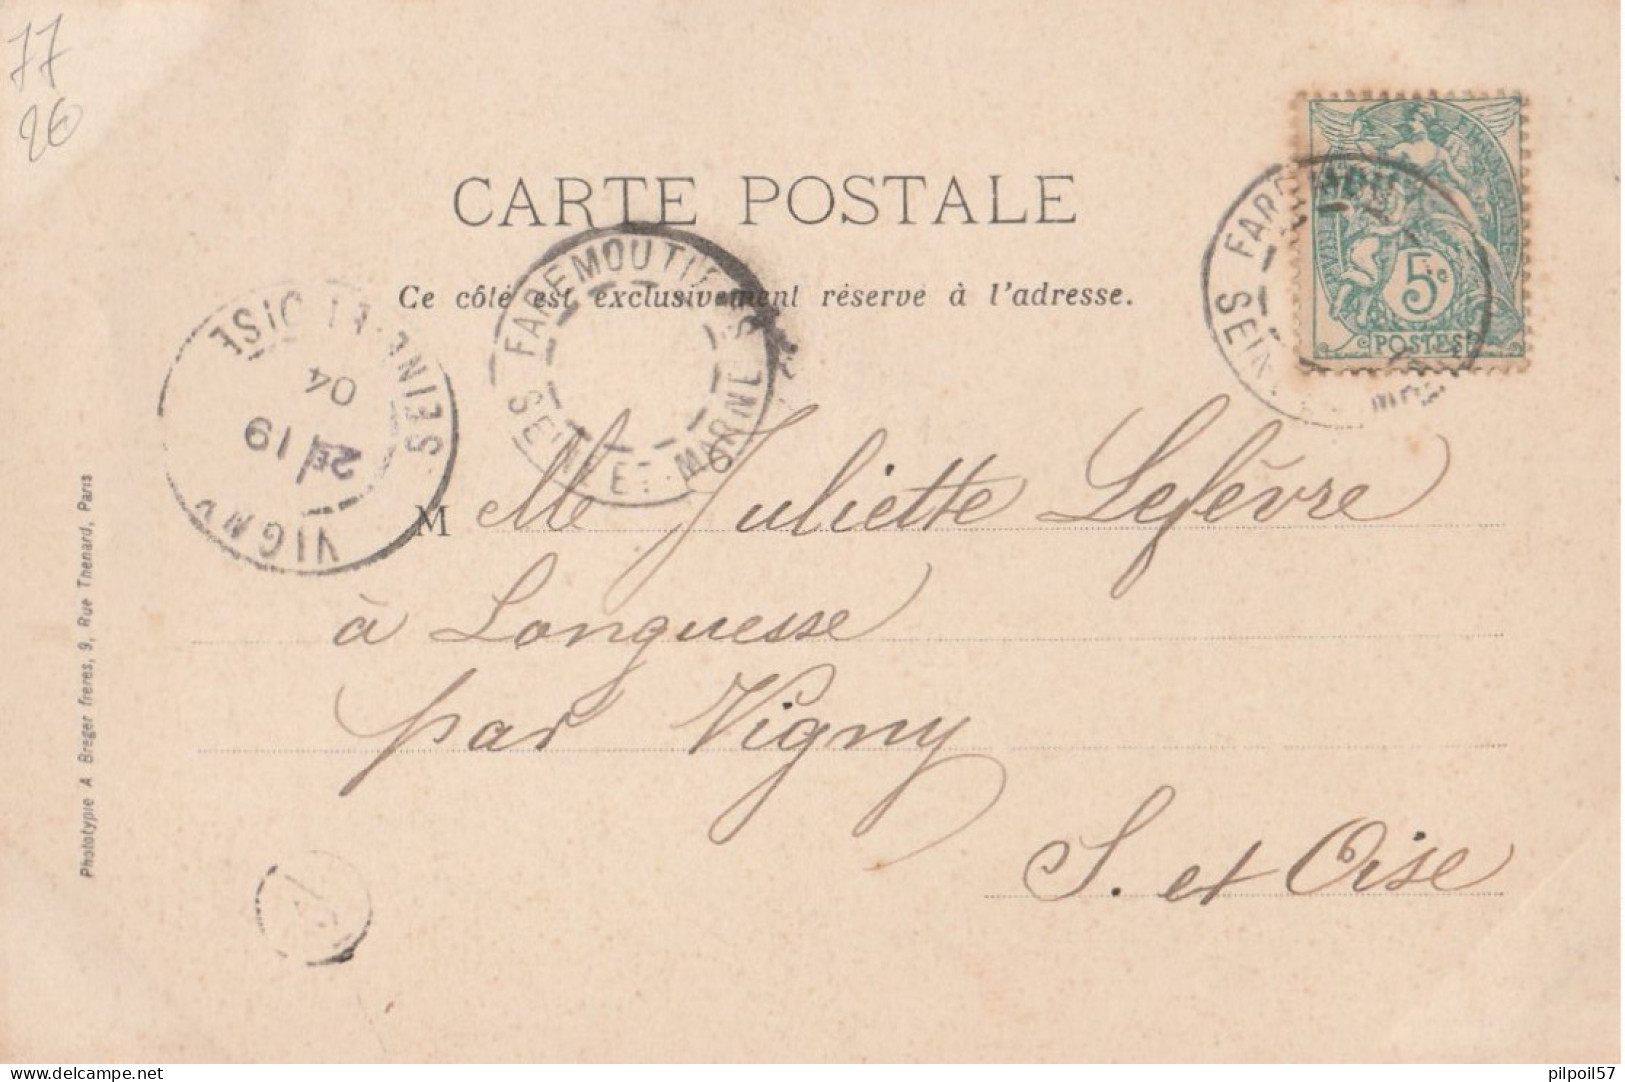 77
26
CARTE POSTALE
Ce côté est exclusivement réservé à l'adresse.
FAREMOUTIERS
SEINE-ET-MARNE
SEINE-ET-OISE
04
19
2E
VIGNY
5c
POSTES
M elle Juliette Lefèvre
à Longuesse
par Vigny
S. et Oise
Phototypie A Breger freres, 9, Rue Thenard, Paris
pilpoil57
www.delcampe.net